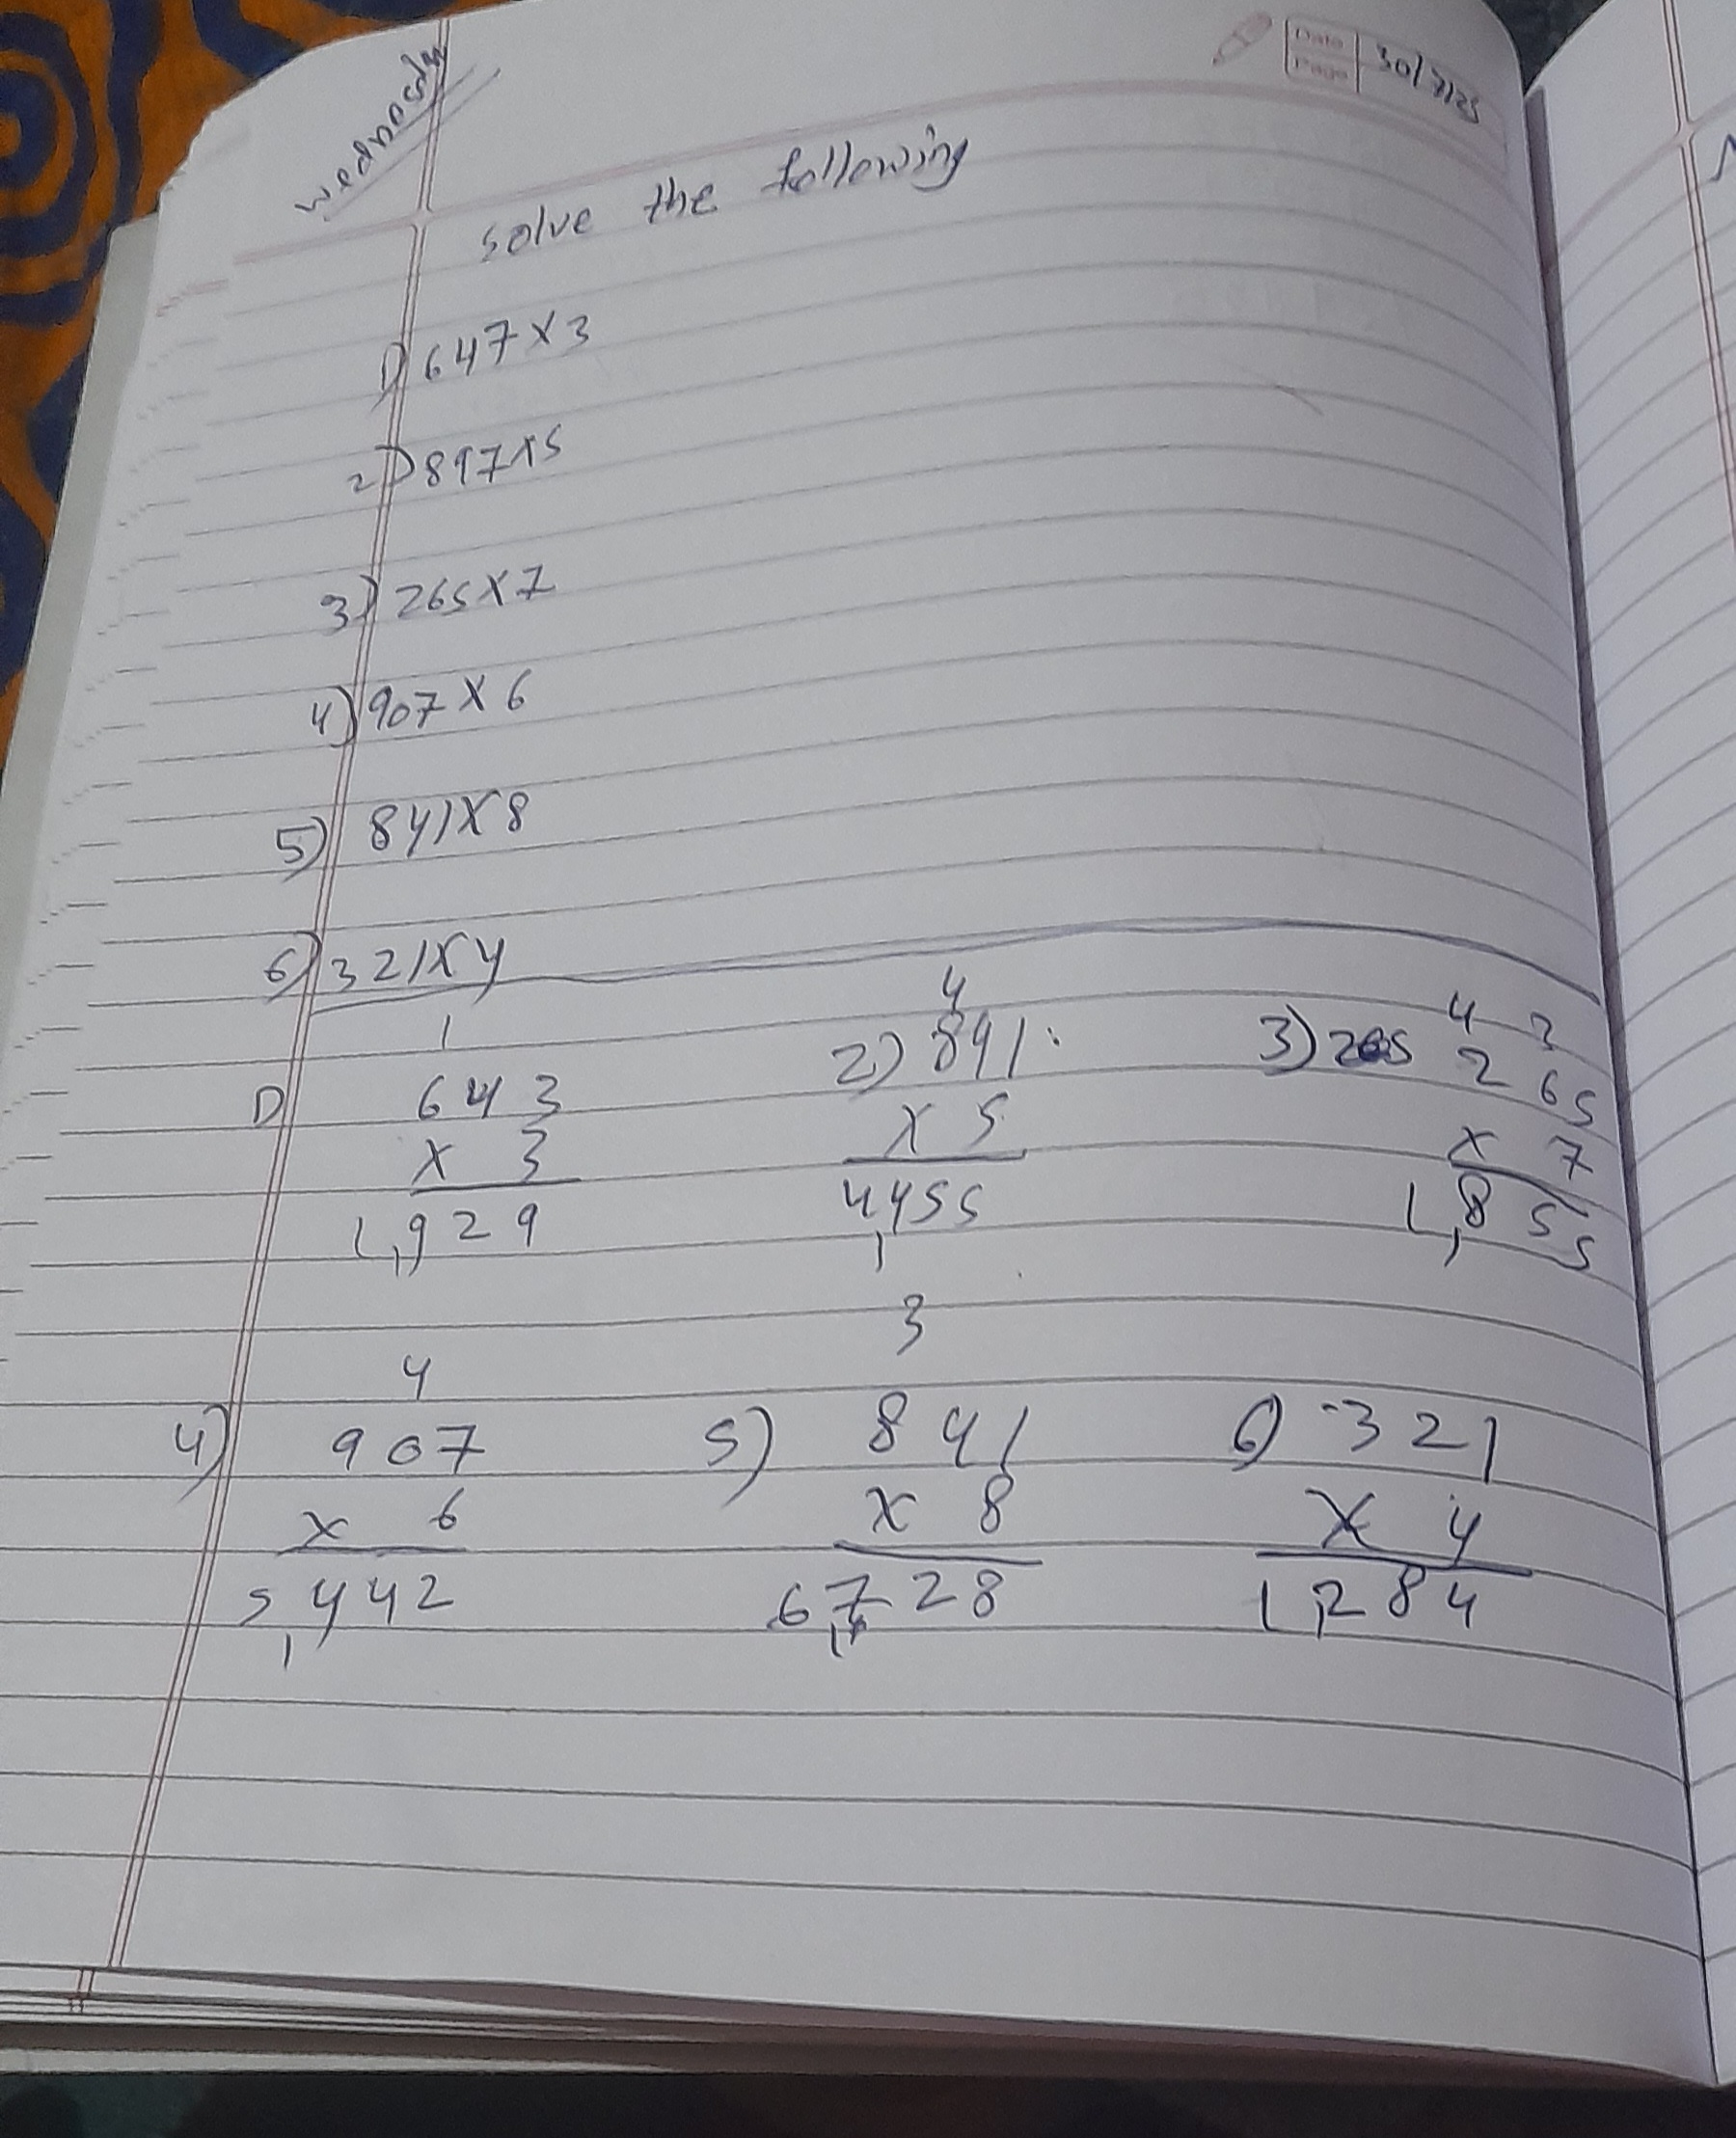 Wednesday
Date
Page
30/7/25
solve the following
1) 647 X 3
2) 897 X 5
3) 265 X 7
4) 907 X 6
5) 841 X 8
6) 321 X 4
1
1) 643
X 3
1,929
4
2) 891
X 5
4,455
4 3
3) 265 265
X 7
1,855
4
4) 907
X 6
5,442
3
5) 841
X 8
6,728
6) 321
X 4
1,284